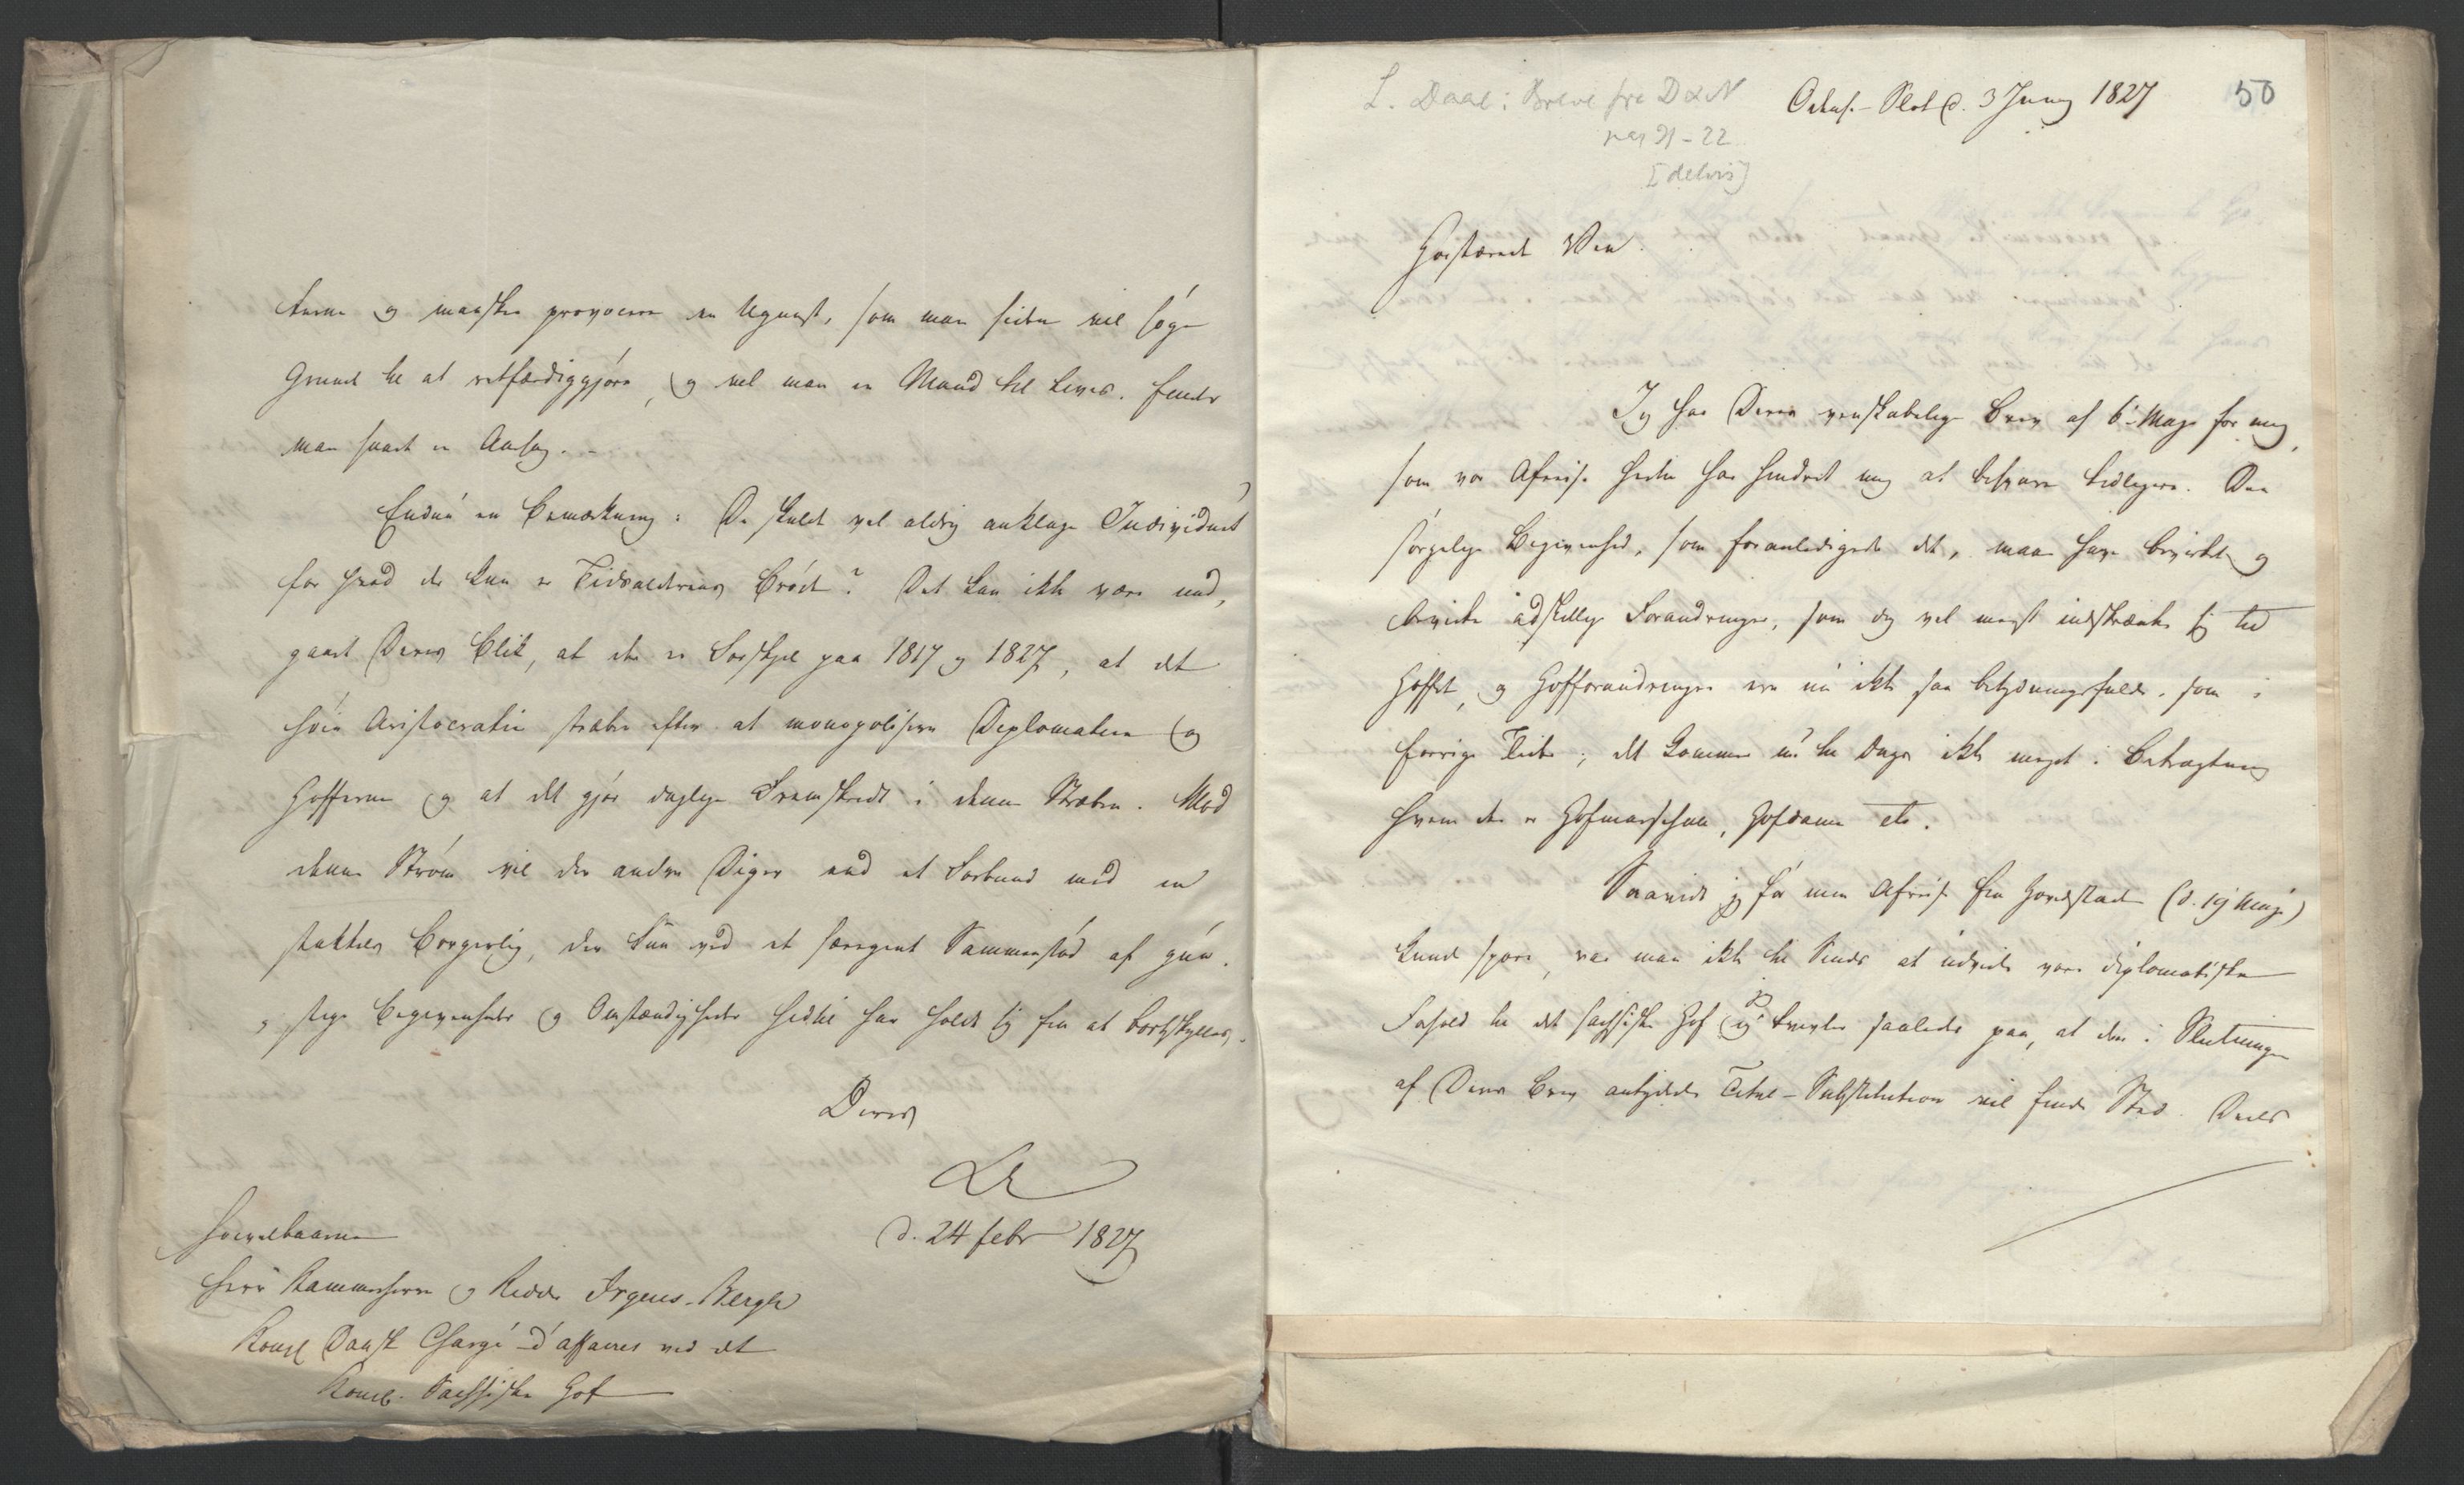 terne og maaskee provocere en Ugunst, som man siden vil søge
Grund til at retfærdiggjøre, og vel man en Mand til Livs. finder
man snart en Aarsag. -
Endnu en Bemærkning: De skulde vel aldrig anklage Individuet
for hvad der kun er Tidsalderens Brøde? Det kan ikke være und,
gaaet Deres Blik, at der er Forskjel paa 1817 og 1827, at det
høie Aristocratie stræber efter at monopolisere Diplomatien og
Hofferne og at det gjør daglige Fremskridt i denne Stræben. Mod
denne Strøm vil der andre Diger end et Forbund med en
stakkels Borgerlig, der kun ved et særegent Sammenstød af gun,
stige Begivenheder og Omstændigheder hidtil har holdt sig fra at bortskylles.
Deres
d. 24 febr 1827
Høivelbaarne
Herr Kammerherre og Ridder Irgens-Bergh
Kongl Dansk Chargé-d'affaires ved det
Kongl. Sachsiske Hof
L. Daae: Breve fra D & N
pag 21-22
[delvis]
Slot d. 3 Juny 1827
50
Høistærede Ven.
Jeg har Deres venskabelige Brev af 6' Maj for mig,
som vor Afreise hertil har hindret mig at besvare tidligere. Den
sørgelige Begivenhed, som foranledigede det, maa have bevirket og
bevirke adskillige Forandringer, som dog vel meest indskrænke sig til
Hoffet, og Hofforandringer ere nu ikke saa betydningsfulde, som i
forrige Tider; det kommer nu til Dags ikke meget i Betragtning
hvem der er Hofmarschal, Hofdame etc.
Saavidt jeg før min Afreise fra Hovedstaden (d. 19 Maj)
kunde spore, var man ikke til Sinds at udvide vore diplomatiske
Forhold til det sachsiske Hof og jeg tvivler saaledes paa, at den i Slutningen
af Deres Brev antydede Titel-Substitution vil finde Sted. Deels